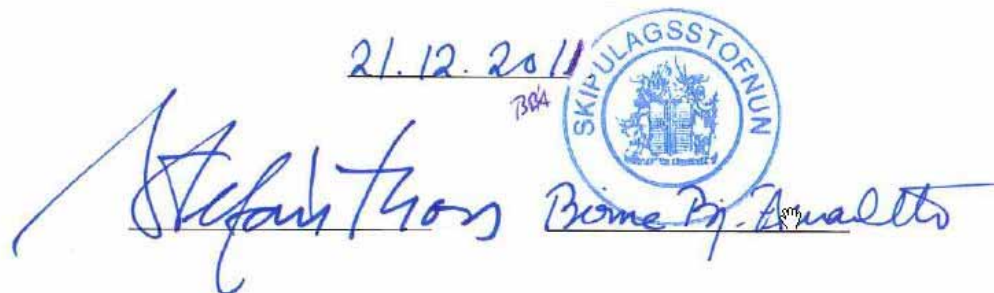 21.12.2011
BBÁ
SKIPULAGSSTOFNUN
Stefán Thors
Birna Bj.